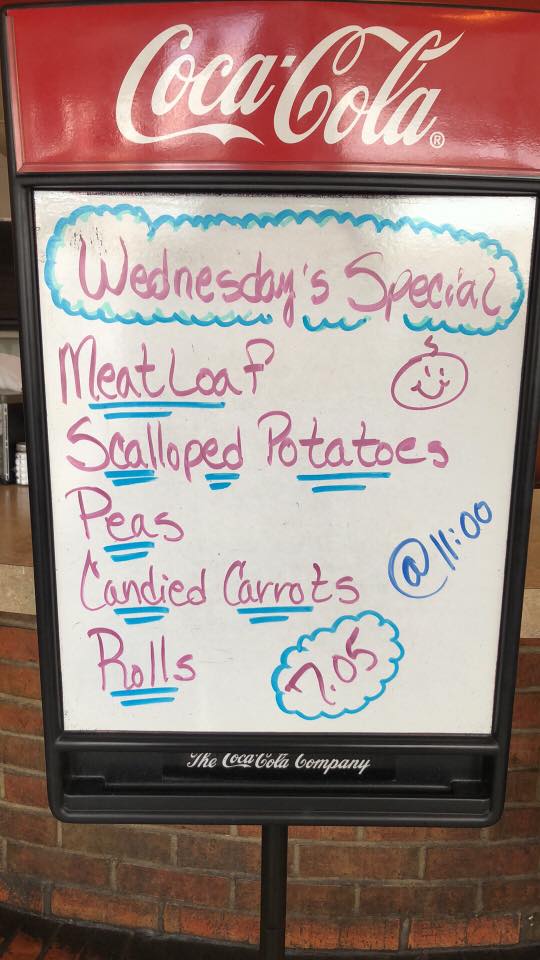 Coca-Cola®
Wednesday's Special
Meat Loaf
Scalloped Potatoes
Peas
@11:00
Candied Carrots
Rolls
7.05
The Coca-Cola Company